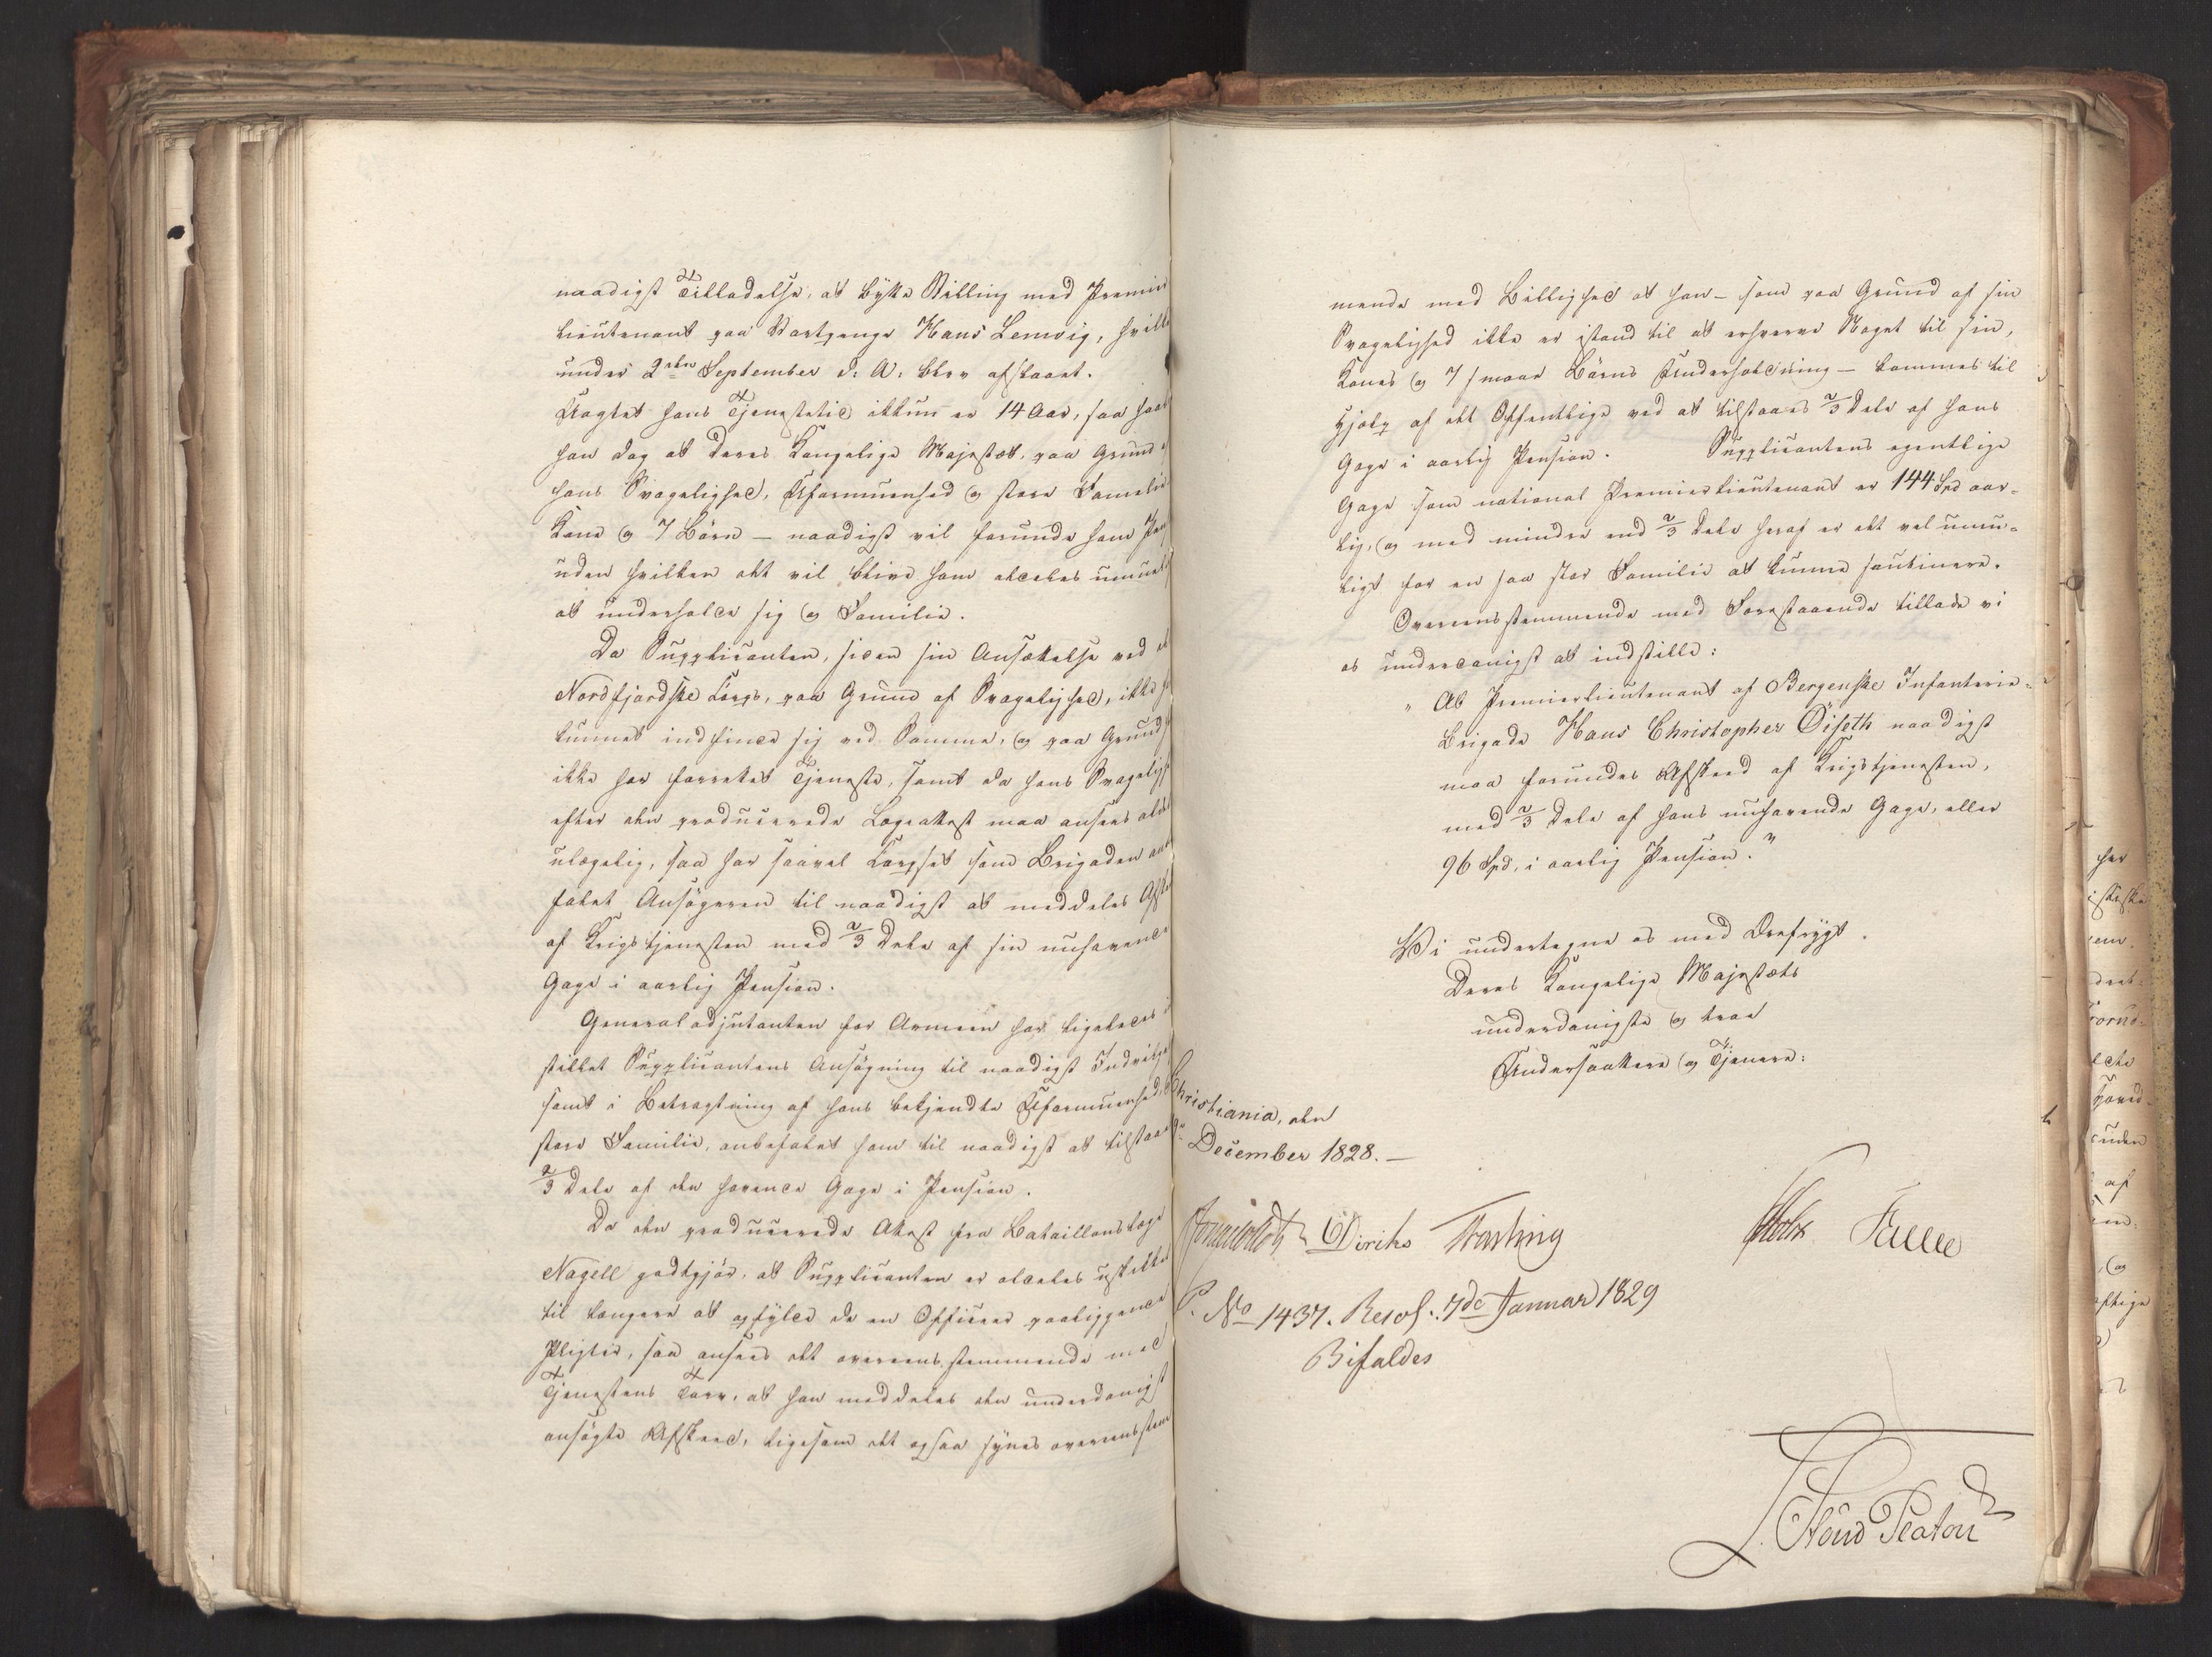 naadigst Tilladelse, at bytte Stilling med Premier
lieutenant paa Vartpenge Hans Lemvig, hvilke
under 2den September d: A: blev afslaaet.
Uagtet hans Tjenestetid ikkun er 14 Aar, saa haab
han dog at Deres Kongelige Majestæt, paa Grund
hans Svagelighed, Uformuenhed og store Familie
Kone og 7 Börn — naadigst vil forunde ham Pen
uden hvilken det vil blive ham aldeles umuel
at underholde sig og Familie.
Da Supplicanten, siden sin Ansættelse ved
Nordfjordske Corps, paa Grund af Svagelighed, ikke
kunnet indfinde sig ved Samme, og paa Grund
ikke har forrettet Tjeneste, samt da hans Svagelig
efter den producerede Lægeattest maa ansees alde
ulægelig, saa har saavel Corpset som Brigaden an
falet Ansögeren til naadigst at meddeles Afske
af Krigstjenesten med 2/3 Dele af sin nuhavende
Gage i aarlig Pension.
Generaladjutanten for Armeen har ligeledes
stillet Supplicantens Ansögning til naadigst Indvilge
samt i Betragtning af hans bekjendte Uformuenhed
store Familie, anbefalet ham til naadigst at tilstaae
2/3 Dele af den havende Gage i Pension.
Da den producerede Attest fra Bataillonslæge
Nagell godtgjör, at Supplicanten er aldeles uskikke
til længere at opfylde de en Officeer paaliggende
Pligter, saa ansees det overeensstemmende med
Tjenestens Tarv, at han meddeles den underdanigst
ansögte Afskeed, ligesom det ogsaa synes overeensstem
mende med Billighed at han — som paa Grund af sin
Svagelighed ikke er istand til at erhverve Noget til sin,
Kones og 7 smaae Börns Underholdning — kommes til
Hjelp af det Offentlige ved at tilstaaes 2/3 Dele af hans
Gage i aarlig Pension. Supplicantens egentlige
Gage som national Premierlieutenant er 144 Spd aar-
lig, og med mindre end 2/3 Dele heraf er det vel umu-
ligt for en saa stor Familie at kunne soutinere.
Overeensstemmende med Forestaaende tillade vi
os underdanigst at indstille:
" At Premierlieutenant af Bergenske Infanterie-
Brigade Hans Christopher Öiseth naadigst
maa forundes Afskeed af Krigstjenesten,
med 2/3 Dele af hans nuhavende Gage, eller
96 Spd, i aarlig Pension."
Vi undertegne os med Ærefrygt.
Deres Kongelige Majestæts
underdanigste og troe
Undersaattere og Tjenere:
Christiania, den
December 1828. —
Diriks Fasting Holst
P. No 1437. Resol: 7de Januar 1829
Bifaldes